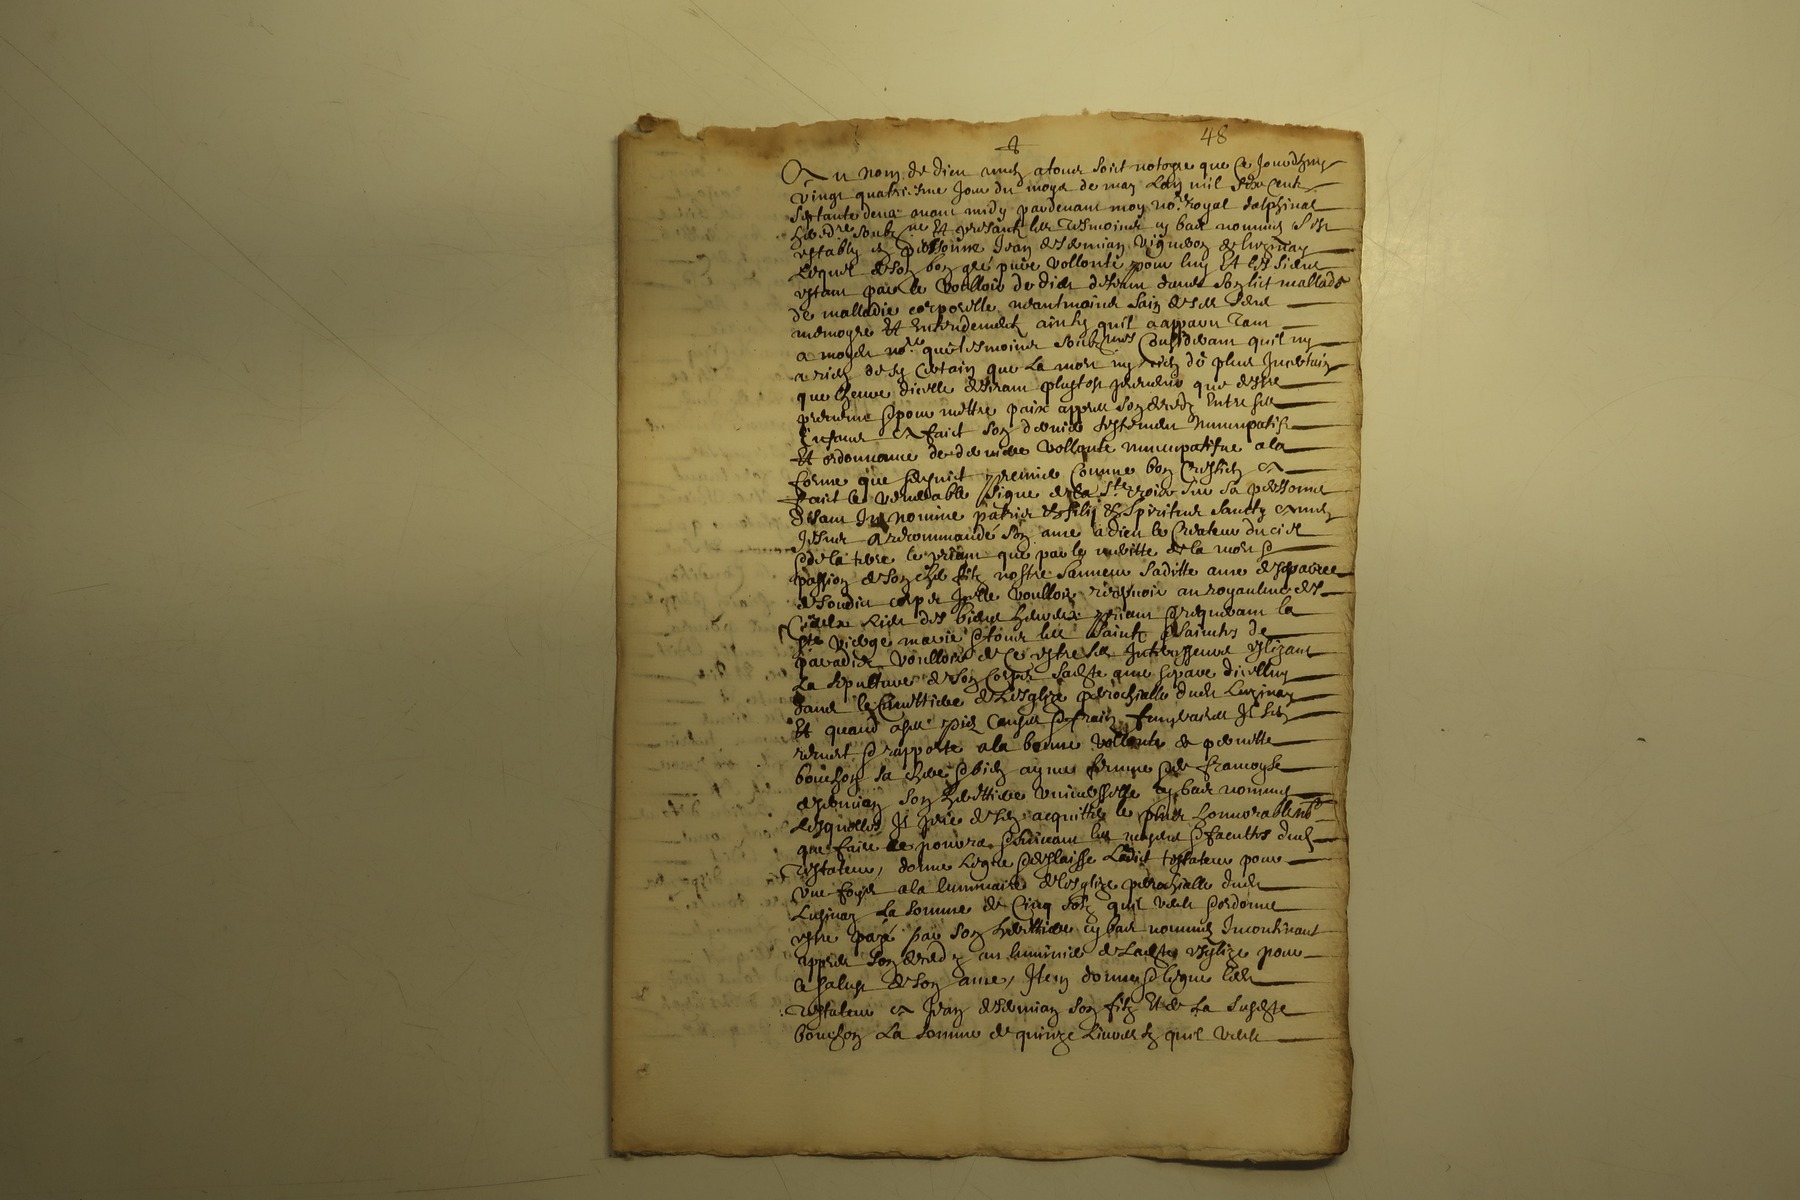 48
Au nom de dieu amen atous soict notoyre que ce jourdhuy
vingt quatriesme jour du moys de may Lan mil six cent
septante deux avant midy pardevant moy no.re royal dalphinal
heredre soubz.ne Et presantz les tesmoings cy bas nommes sest
estably en personne Jean vigneron de luzinay
Lequel de son bon gré pure vollonté pour luy Et les siens
estant par le voulloir de dieu detenu dans son lict mallade
de malladie corporelle neantmoings sain de ses sens
memoyre Et Entendement ainsy quil a apparu tant
a moydt no.re que tesmoings soubz.nes Considerant quil ny
a rien de sy certain que la mort ny rien de plus Incertain
que lheure dicelle desirant plustost prevenir que destre
prevenu & pour mettre paix appres son deceds Entre ses
Enfans a faict son dernier testement Nuncupatif
Et ordonnance de derniere vollonté nuncupatifve a la
forme que sensuit premier Comme bon Crestien a
faict le venerable signe de la S.te croix sur sa personne
Disant In nomine patris & filij & spiritus sancty amen
Jesus a recommandé son ame a dieu le Createur du ciel
& de la terre le priant que par le meritte de la mort &
passion de son cher filz nostre sauveur saditte ame separee
de soudict corps Icelle voulloir recepvoir au royaulme des
Cieulx Rien des biens heureux priant & requerant la
S.te vierge marie & tous les saintz & saintes de
paradis voulloir de ce estre ses Intercesseurs eslizant
La sepulture de son corps sadste ame separe dicelluy
dans le Cimettiere de Lesglize parochialle dudt Luzinay
Et quand a ses pies Causes & fraix funeraires Il sen
remect & rapporte a la bonne vollonte de pernette
bouchon sa chere & bien aymee femme & de francoyse
son herettiere universelle cy bas nommee
Lesquelles Il prie de sen acquitter le plus honnorablem.t
que faire se pourra & suivant les moyens & facultes dudt
testateur, donne Legue & deslaisse Ledict testateur pour
une foys a la luminaire de lesglize parochialle dudt
Luzinay La somme de Cinq solz quil veult & ordonne
estre payé par son herettiere cy bas nommée Incontinant
appres son deceds au luminier de Ladte esglize pour
le salut de son ame, Item donne & legue ledt
testateur a Jean son filz Et de La susdste
bouchon La somme de quinze Livres tz quil veult